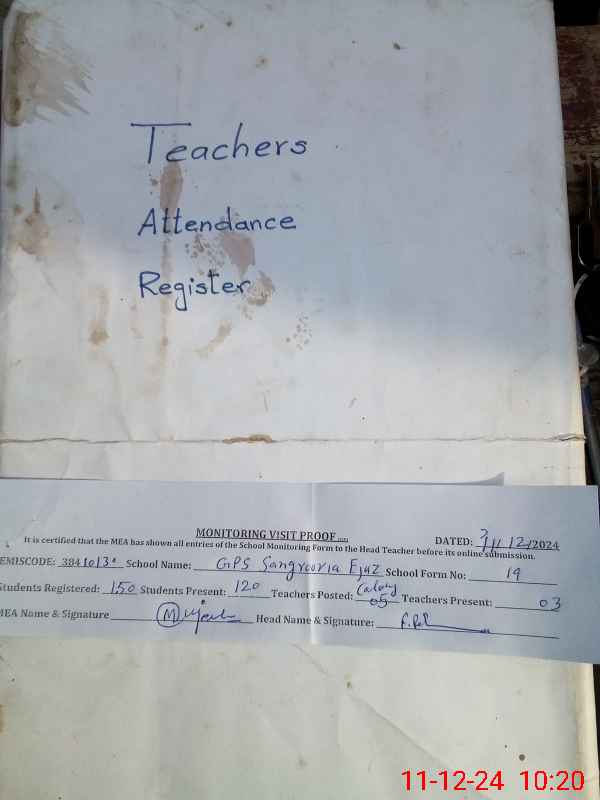 Teachers
Attendance
Register
MONITORING VISIT PROOF
DATED: 11/12/2024
It is certified that the MEA has shown all entries of the School Monitoring Form to the Head Teacher before its online submission.
EMISCODE: 384 School Name: GPS Sangrooria Ejaz School Form No: 19
Students Registered: 150 Students Present: 120 Teachers Posted: 05 Teachers Present: 03
MEA Name & Signature Head Name & Signature:
11-12-24 10:20